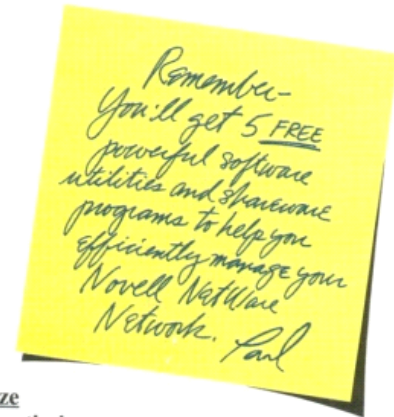 Remember-
You'll get 5 FREE
powerful software
utilities and shareware
programs to help you
efficiently manage your
Novell NetWare
Network. Paul
ze